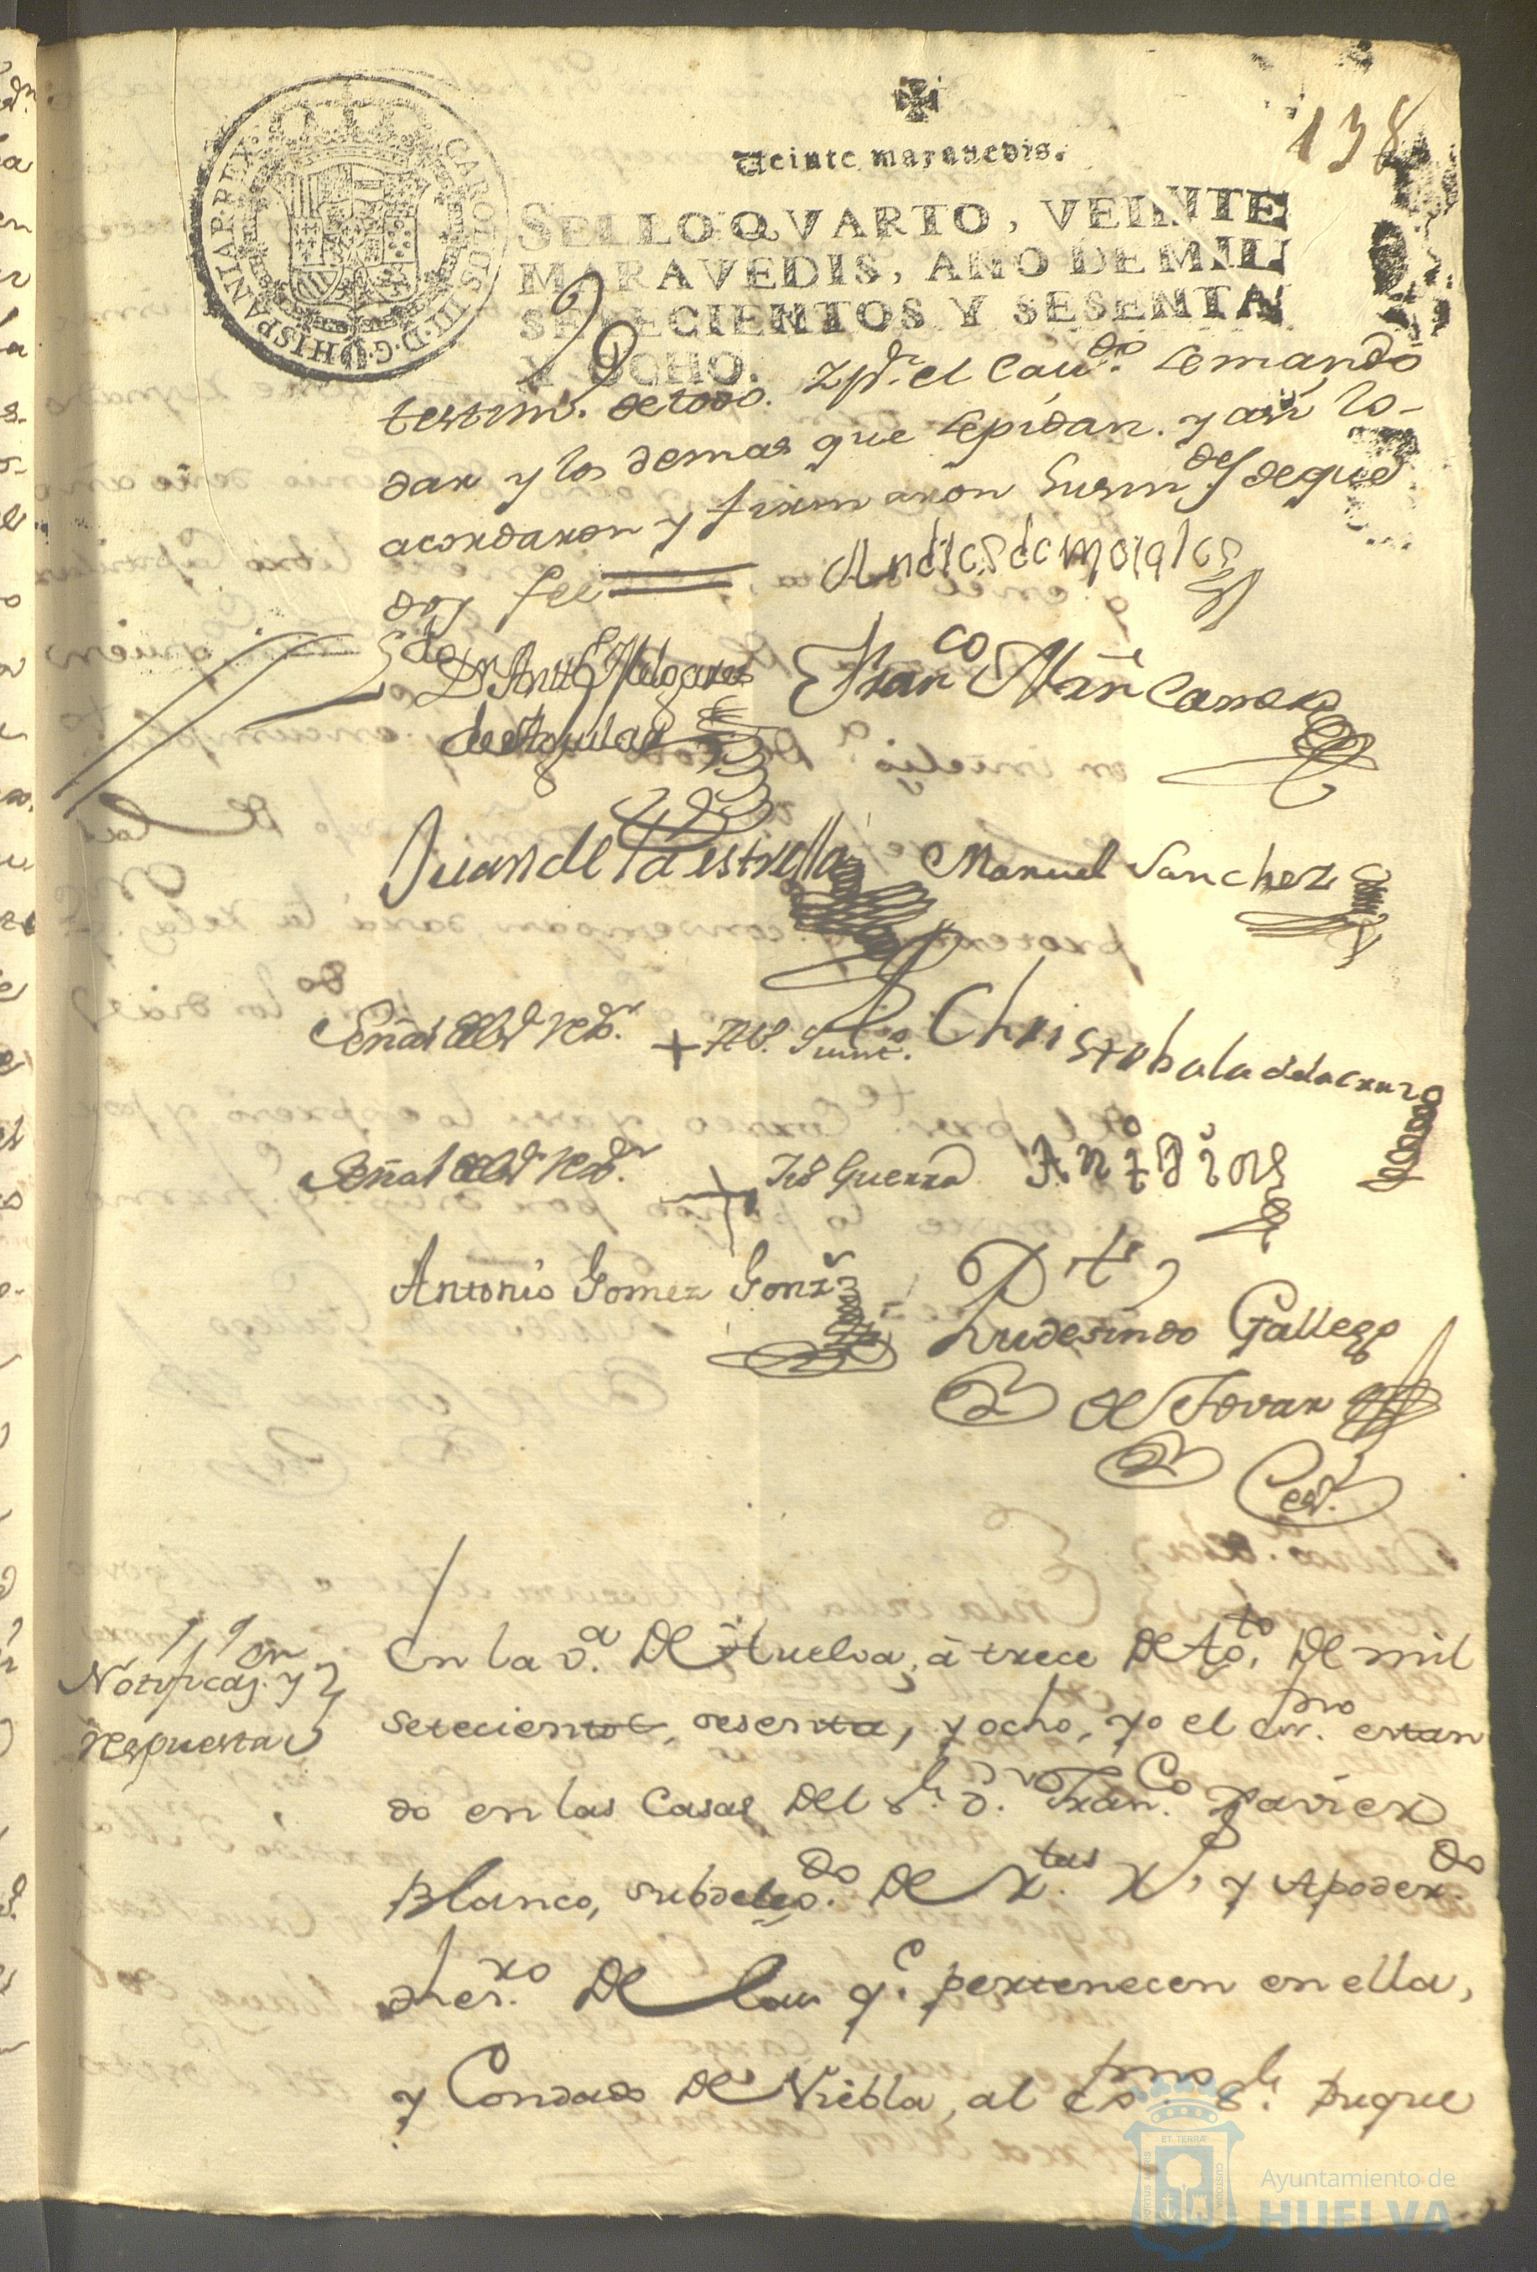 138
Veinte maravedis.
SELLO QVARTO, VEINTE
MARAVEDIS, AÑO DE MIL
SETECIENTOS Y SESENTA
Y OCHO.
CAROLUS III D. G. HISPANIAR. REX
testim.º de todo. el Cav.do se mandó
dar y los demas que se pidan. y asi lo-
acordaron y firmaron Susm.des de que
doy fee
Andres de morales
Fran.co Mrñ Carrer
de Aguilar
Juan de la estrella
Manuel Sanchez
Señal del Sr. Rex.r + Christobal a de la cruz
Señal del Sr. Rex.r + Guerra Ant Dios
Antonio Gomez Gonz
Rudesindo Gallego
de Tovar
Notificaz.on y
respuesta
En la v.a De Huelva, á trece De Ag.to De mil
setecientos, sesenta, y ocho, yo el Ess.no estan
do en las Casas Del S.r D.n Fran.co Xavier
Blanco, subdeleg.do De R.tas R.s y Apoder.do
De las q.e pertenecen en ella,
y Condado De Niebla, al Ex.mo S.r Duque
ET TERRÆ
CUSTODIA
Ayuntamiento de
HUELVA